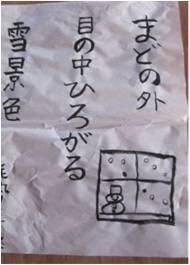 まどの外
目の中ひろがる
雪景色